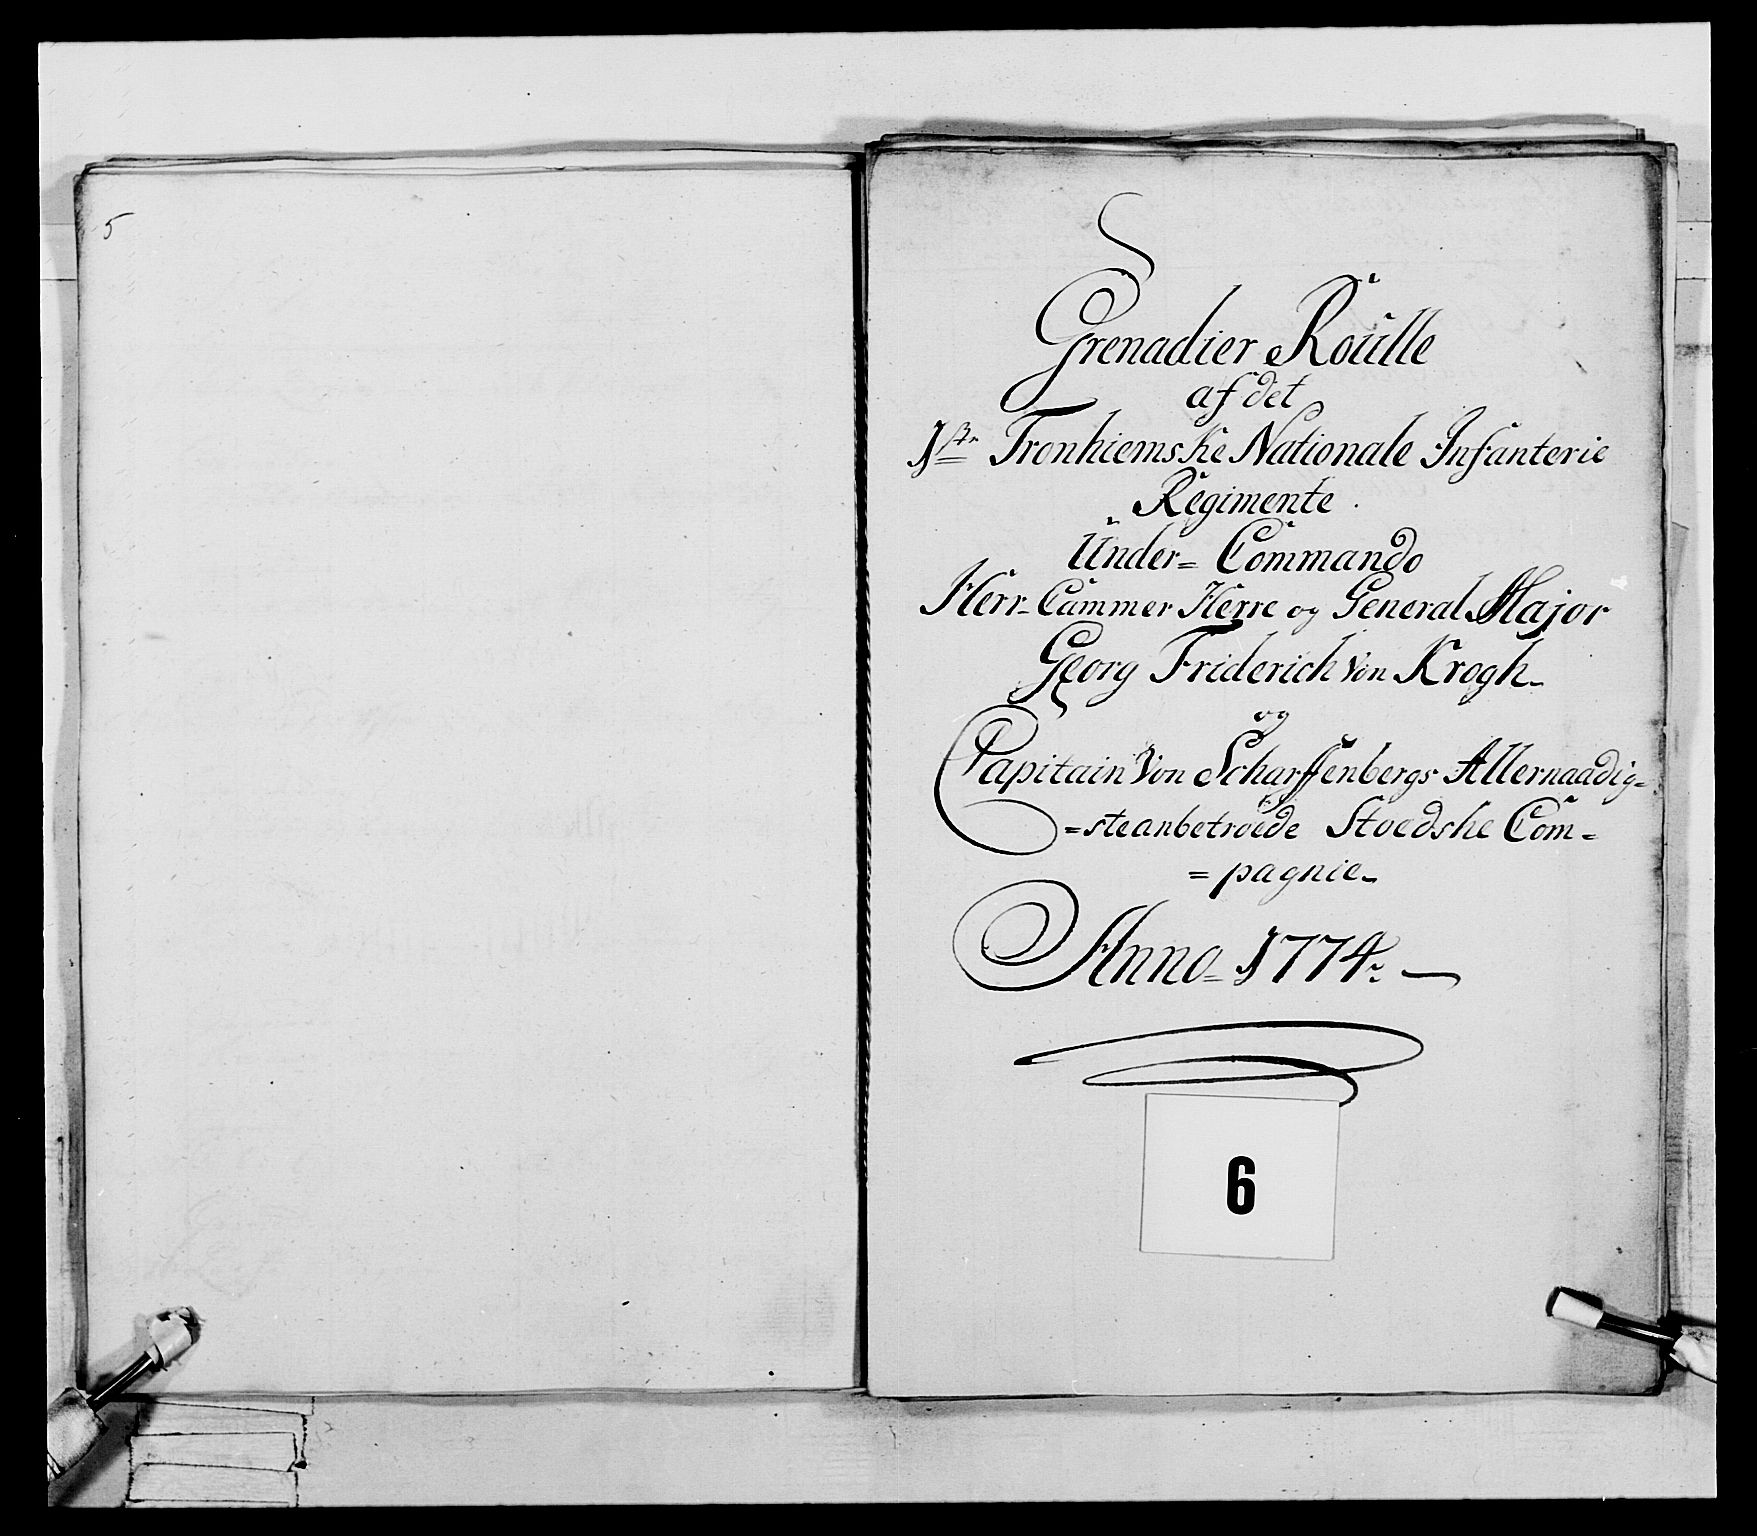 5
Grenadier Roülle
af det
1ste Tronhiemske Nationale Infanterie
Regimente.
Ünder= Commando
Herr- Cammer Herre og General Major
Georg Friderich von Krogh-
og
Capitain von Scharffenbergs Allernaadig=
=steanbetroede Stoedske Com=
=pagnie-
Anno= 1774
6